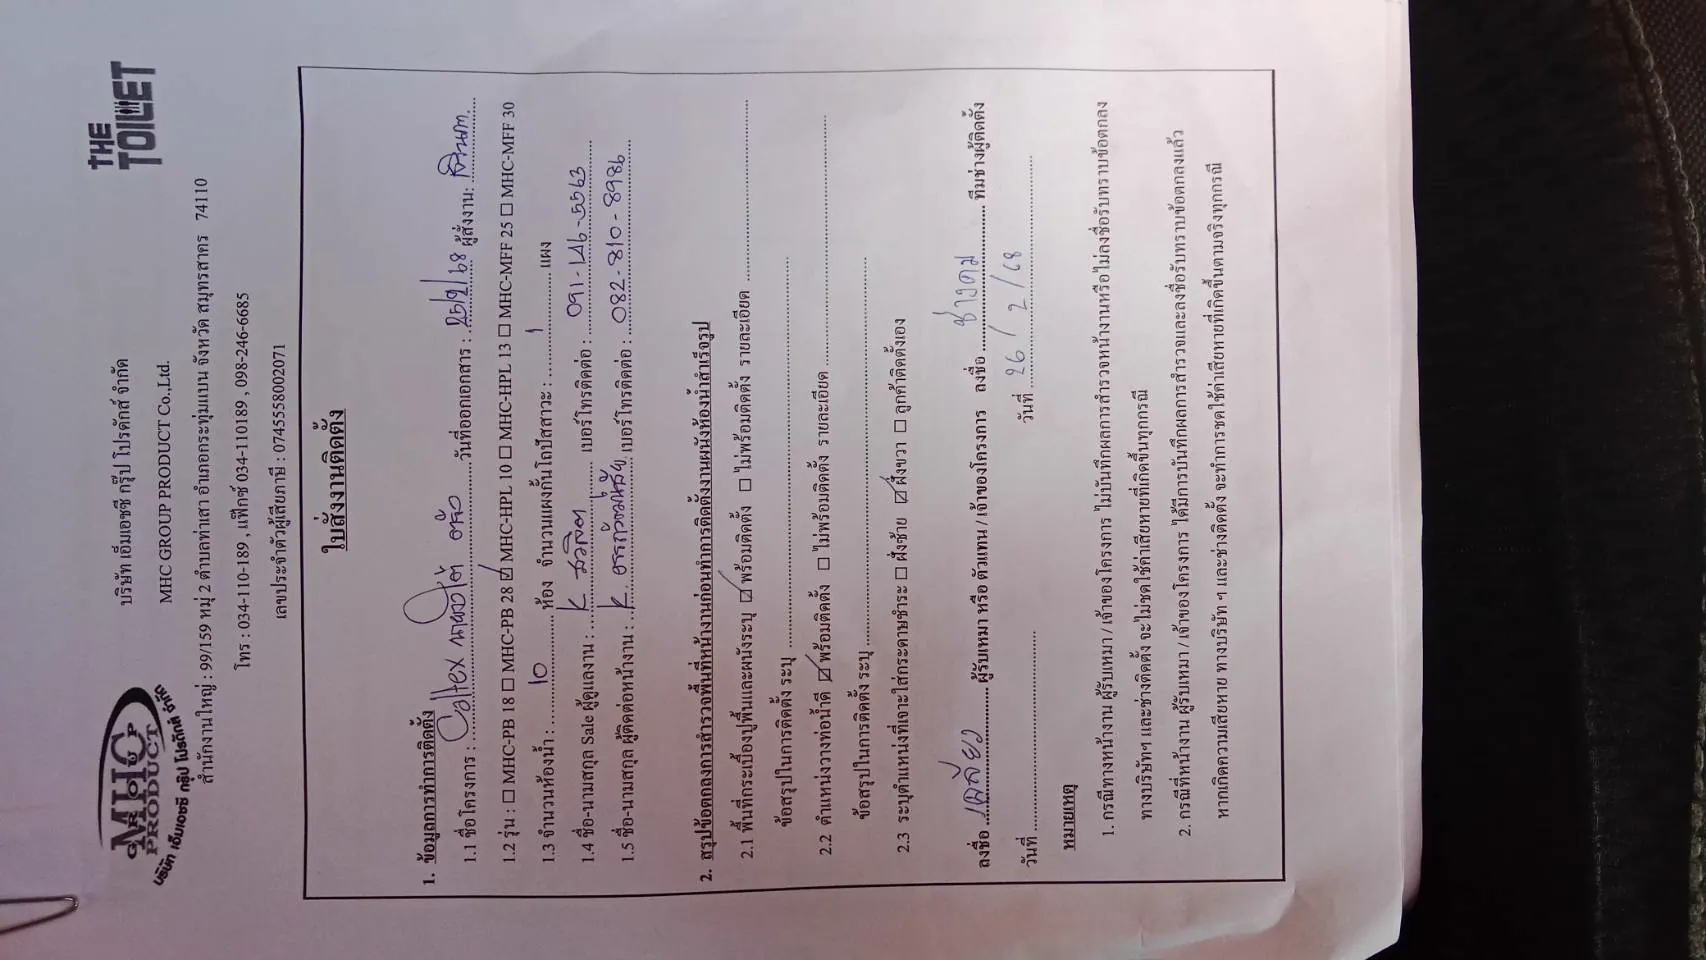 MHC
GROUP
PRODUCT
บริษัท เอ็มเอชซี กรุ๊ป โปรดักส์ จำกัด
THE
TOILET
บริษัท เอ็มเอชซี กรุ๊ป โปรดักส์ จำกัด
MHC GROUP PRODUCT Co.,Ltd.
สำนักงานใหญ่ : 99/159 หมู่ 2 ตำบลท่าเสา อำเภอกระทุ่มแบน จังหวัด สมุทรสาคร 74110
โทร : 034-110-189 , แฟ็กซ์ 034-110189 , 098-246-6685
เลขประจำตัวผู้เสียภาษี : 0745558002071
ใบสั่งงานติดตั้ง
1. ข้อมูลการทำการติดตั้ง
1.1 ชื่อโครงการ : Caltex วันที่ออกเอกสาร : 25/2/68 ผู้สั่งงาน:
1.2 รุ่น : ☐ MHC-PB 18 ☐ MHC-PB 28 ☑ MHC-HPL 10 ☐ MHC-HPL 13 ☐ MHC-MFF 25 ☐ MHC-MFF 30
1.3 จำนวนห้องน้ำ : 10 ห้อง จำนวนแผงกั้นโถปัสสาวะ : 1 แผง
1.4 ชื่อ-นามสกุล Sale ผู้ดูแลงาน : K เบอร์โทรติดต่อ : 091-146-5563
1.5 ชื่อ-นามสกุล ผู้ติดต่อหน้างาน : K. เบอร์โทรติดต่อ : 082-810-8986
2. สรุปข้อตกลงการสำรวจพื้นที่หน้างานก่อนทำการติดตั้งงานผนังห้องน้ำสำเร็จรูป
2.1 พื้นที่กระเบื้องปูพื้นและผนังระบุ ☑ พร้อมติดตั้ง ☐ ไม่พร้อมติดตั้ง รายละเอียด
ข้อสรุปในการติดตั้ง ระบุ
2.2 ตำแหน่งวางท่อน้ำดี ☑ พร้อมติดตั้ง ☐ ไม่พร้อมติดตั้ง รายละเอียด
ข้อสรุปในการติดตั้ง ระบุ
2.3 ระบุตำแหน่งที่เจาะใส่กระดาษชำระ ☐ ฝั่งซ้าย ☑ ฝั่งขวา ☐ ลูกค้าติดตั้งเอง
ลงชื่อ เฉลียว ผู้รับเหมา หรือ ตัวแทน / เจ้าของโครงการ ลงชื่อ ช่างคม ทีมช่างผู้ติดตั้ง
วันที่ วันที่ 26/2/68
หมายเหตุ
1. กรณีทางหน้างาน ผู้รับเหมา / เจ้าของโครงการ ไม่บันทึกผลการสำรวจหน้างานหรือไม่ลงชื่อรับทราบข้อตกลง
ทางบริษัทฯ และช่างติดตั้ง จะไม่ชดใช้ค่าเสียหายที่เกิดขึ้นทุกกรณี
2. กรณีที่หน้างาน ผู้รับเหมา / เจ้าของโครงการ ได้มีการบันทึกผลการสำรวจและลงชื่อรับทราบข้อตกลงแล้ว
หากเกิดความเสียหาย ทางบริษัท ฯ และช่างติดตั้ง จะทำการชดใช้ค่าเสียหายที่เกิดขึ้นตามจริงทุกกรณี